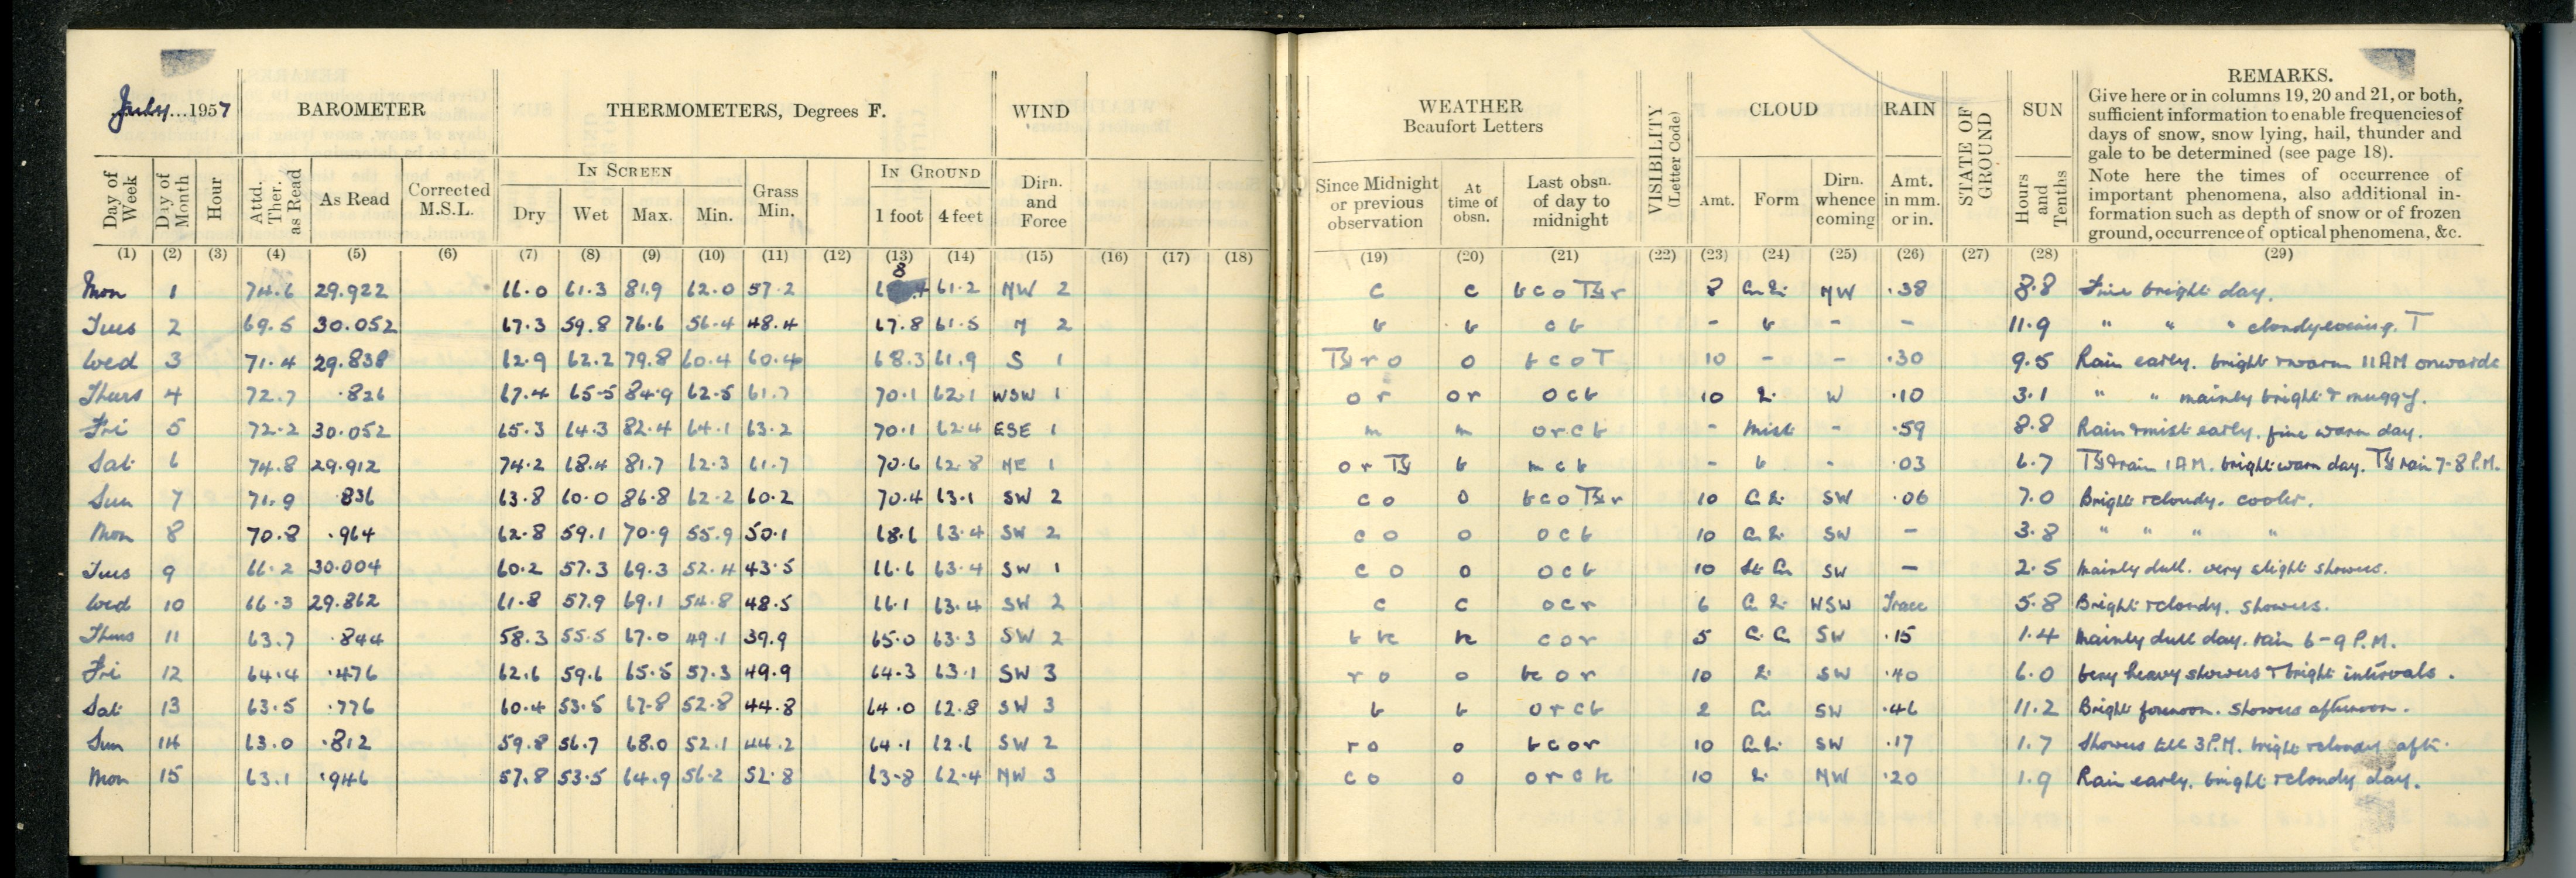 July 1957
BAROMETER
THERMOMETERS, Degrees F.
WIND
WEATHER
Beaufort Letters
VISIBILITY
(Letter Code)
CLOUD
RAIN
STATE OF GROUND
SUN
REMARKS.
Give here or in columns 19, 20 and 21, or both,
sufficient information to enable frequencies of
days of snow, snow lying, hail, thunder and
gale to be determined (see page 18).
Note here the times of occurrence of
important phenomena, also additional in-
formation such as depth of snow or of frozen
ground, occurrence of optical phenomena, &c.
Day of Week
Day of Month
Hour
Attd. Ther. as Read
As Read
Corrected M.S.L.
IN SCREEN
Dry Wet Max. Min.
Grass Min.
IN GROUND
1 foot 4 feet
Dirn. and Force
Since Midnight or previous observation
At time of obsn.
Last obsn. of day to midnight
Amt. Form
Dirn. whence coming
Amt. in mm. or in.
Hours and Tenths
(1) (2) (3) (4) (5) (6) (7) (8) (9) (10) (11) (12) (13) (14) (15) (16) (17) (18) (19) (20) (21) (22) (23) (24) (25) (26) (27) (28) (29)
Mon 1 74.6 29.922 66.0 61.3 81.9 62.0 57.2 61.2 NW 2 c c b c o r 8 Cu NW .38 8.8 Fine bright day.
Tues 2 69.5 30.052 67.3 59.8 76.6 56.4 48.4 67.8 61.5 N 2 b b c b - b - - 11.9 " " " cloudy evening. T
Wed 3 71.4 29.838 62.9 62.2 79.8 60.4 60.4 68.3 61.9 S 1 r o o b c o T 10 - - .30 9.5 Rain early. bright & warm 11 AM onwards
Thurs 4 72.7 .826 67.4 65.5 84.9 62.5 61.7 70.1 62.1 WSW 1 o r o r o c b 10 W .10 3.1 " " mainly bright & muggy.
Fri 5 72.2 30.052 65.3 64.3 82.4 64.1 63.2 70.1 62.4 ESE 1 m m o r c b - Mist - .59 8.8 Rain & mist early. fine warm day.
Sat 6 74.8 29.912 74.2 68.4 81.7 62.3 61.7 70.6 62.8 NE 1 o r b m c b - b - .03 6.7 & rain 1 AM. bright warm day. rain 7-8 P.M.
Sun 7 71.9 .836 63.8 60.0 86.8 62.2 60.2 70.4 63.1 SW 2 c o o b c o r 10 SW .06 7.0 Bright & cloudy. cooler.
Mon 8 70.8 .964 62.8 59.1 70.9 55.9 50.1 68.6 63.4 SW 2 c o o o c b 10 SW - 3.8 " " " "
Tues 9 66.2 30.004 60.2 57.3 69.3 52.4 43.5 66.6 63.4 SW 1 c o o o c b 10 St Cu SW - 2.5 Mainly dull. very slight showers.
Wed 10 66.3 29.862 61.8 57.9 69.1 54.8 48.5 66.1 63.4 SW 2 c c o c r 6 WSW Trace 5.8 Bright & cloudy. Showers.
Thurs 11 63.7 .844 58.3 55.5 67.0 49.1 39.9 65.0 63.3 SW 2 b bc bc c o r 5 SW .15 1.4 Mainly dull day. rain 6-9 P.M.
Fri 12 64.4 .476 62.6 59.6 65.5 57.3 49.9 64.3 63.1 SW 3 r o o bc o r 10 SW .40 6.0 Very heavy showers & bright intervals.
Sat 13 63.5 .776 60.4 53.5 67.8 52.8 44.8 64.0 62.8 SW 3 b b o r c b 2 Cu SW .46 11.2 Bright forenoon. Showers afternoon.
Sun 14 63.0 .812 59.8 56.7 68.0 52.1 44.2 64.1 62.6 SW 2 r o o b c o r 10 SW .17 1.7 Showers till 3 P.M. bright & cloudy aft.
Mon 15 63.1 .946 57.8 53.5 64.9 56.2 52.8 63.8 62.4 NW 3 c o o o r c bc 10 NW .20 1.9 Rain early. bright & cloudy day.